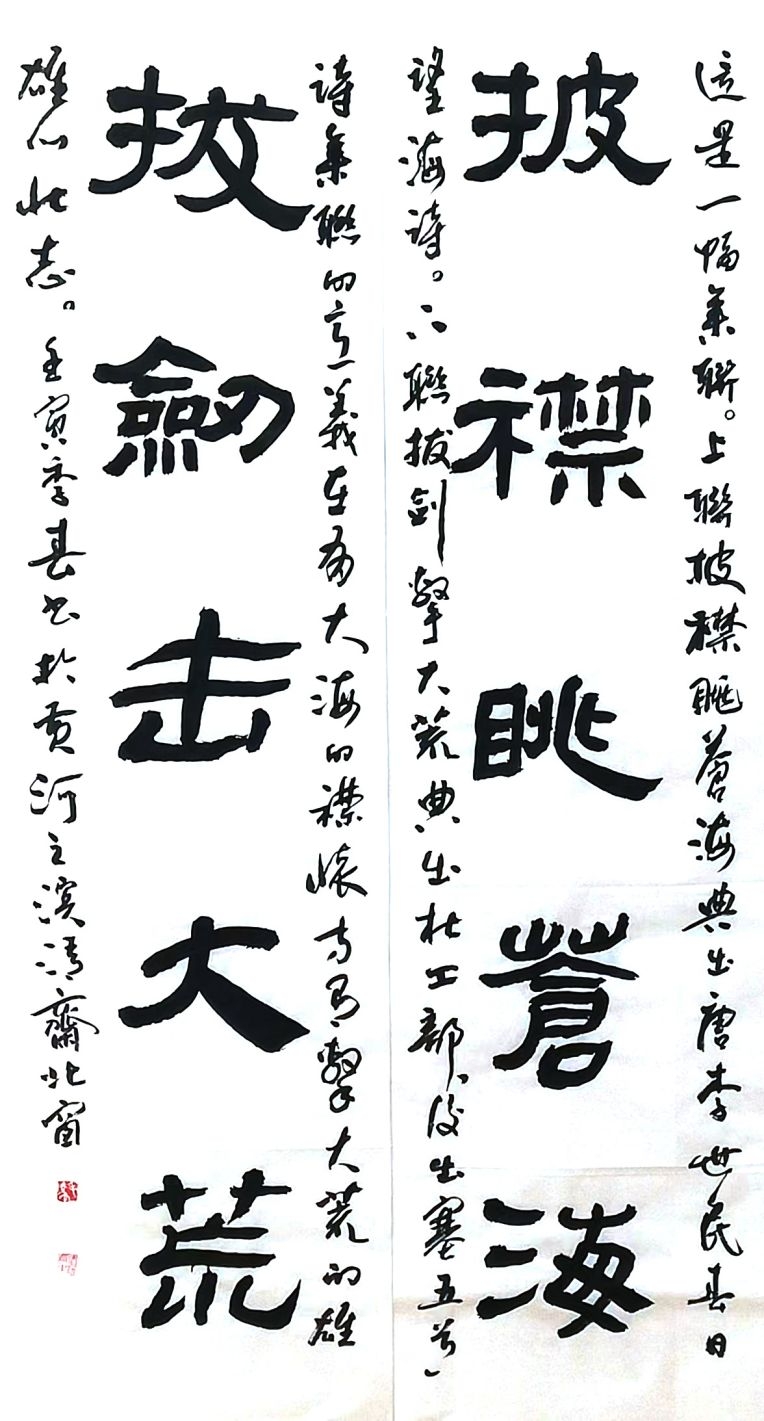 這是一幅集聯。上聯披襟眺蒼海典出唐李世民春日
披襟眺蒼海
望海詩。下聯拔剑擊大荒典出杜工部、後出塞五首」
詩集聯的意義在有大海的襟懷方有擊大荒的雄
拔劒击大荒
雄心壯志。壬寅季春书於黄河之濱清齋北窗